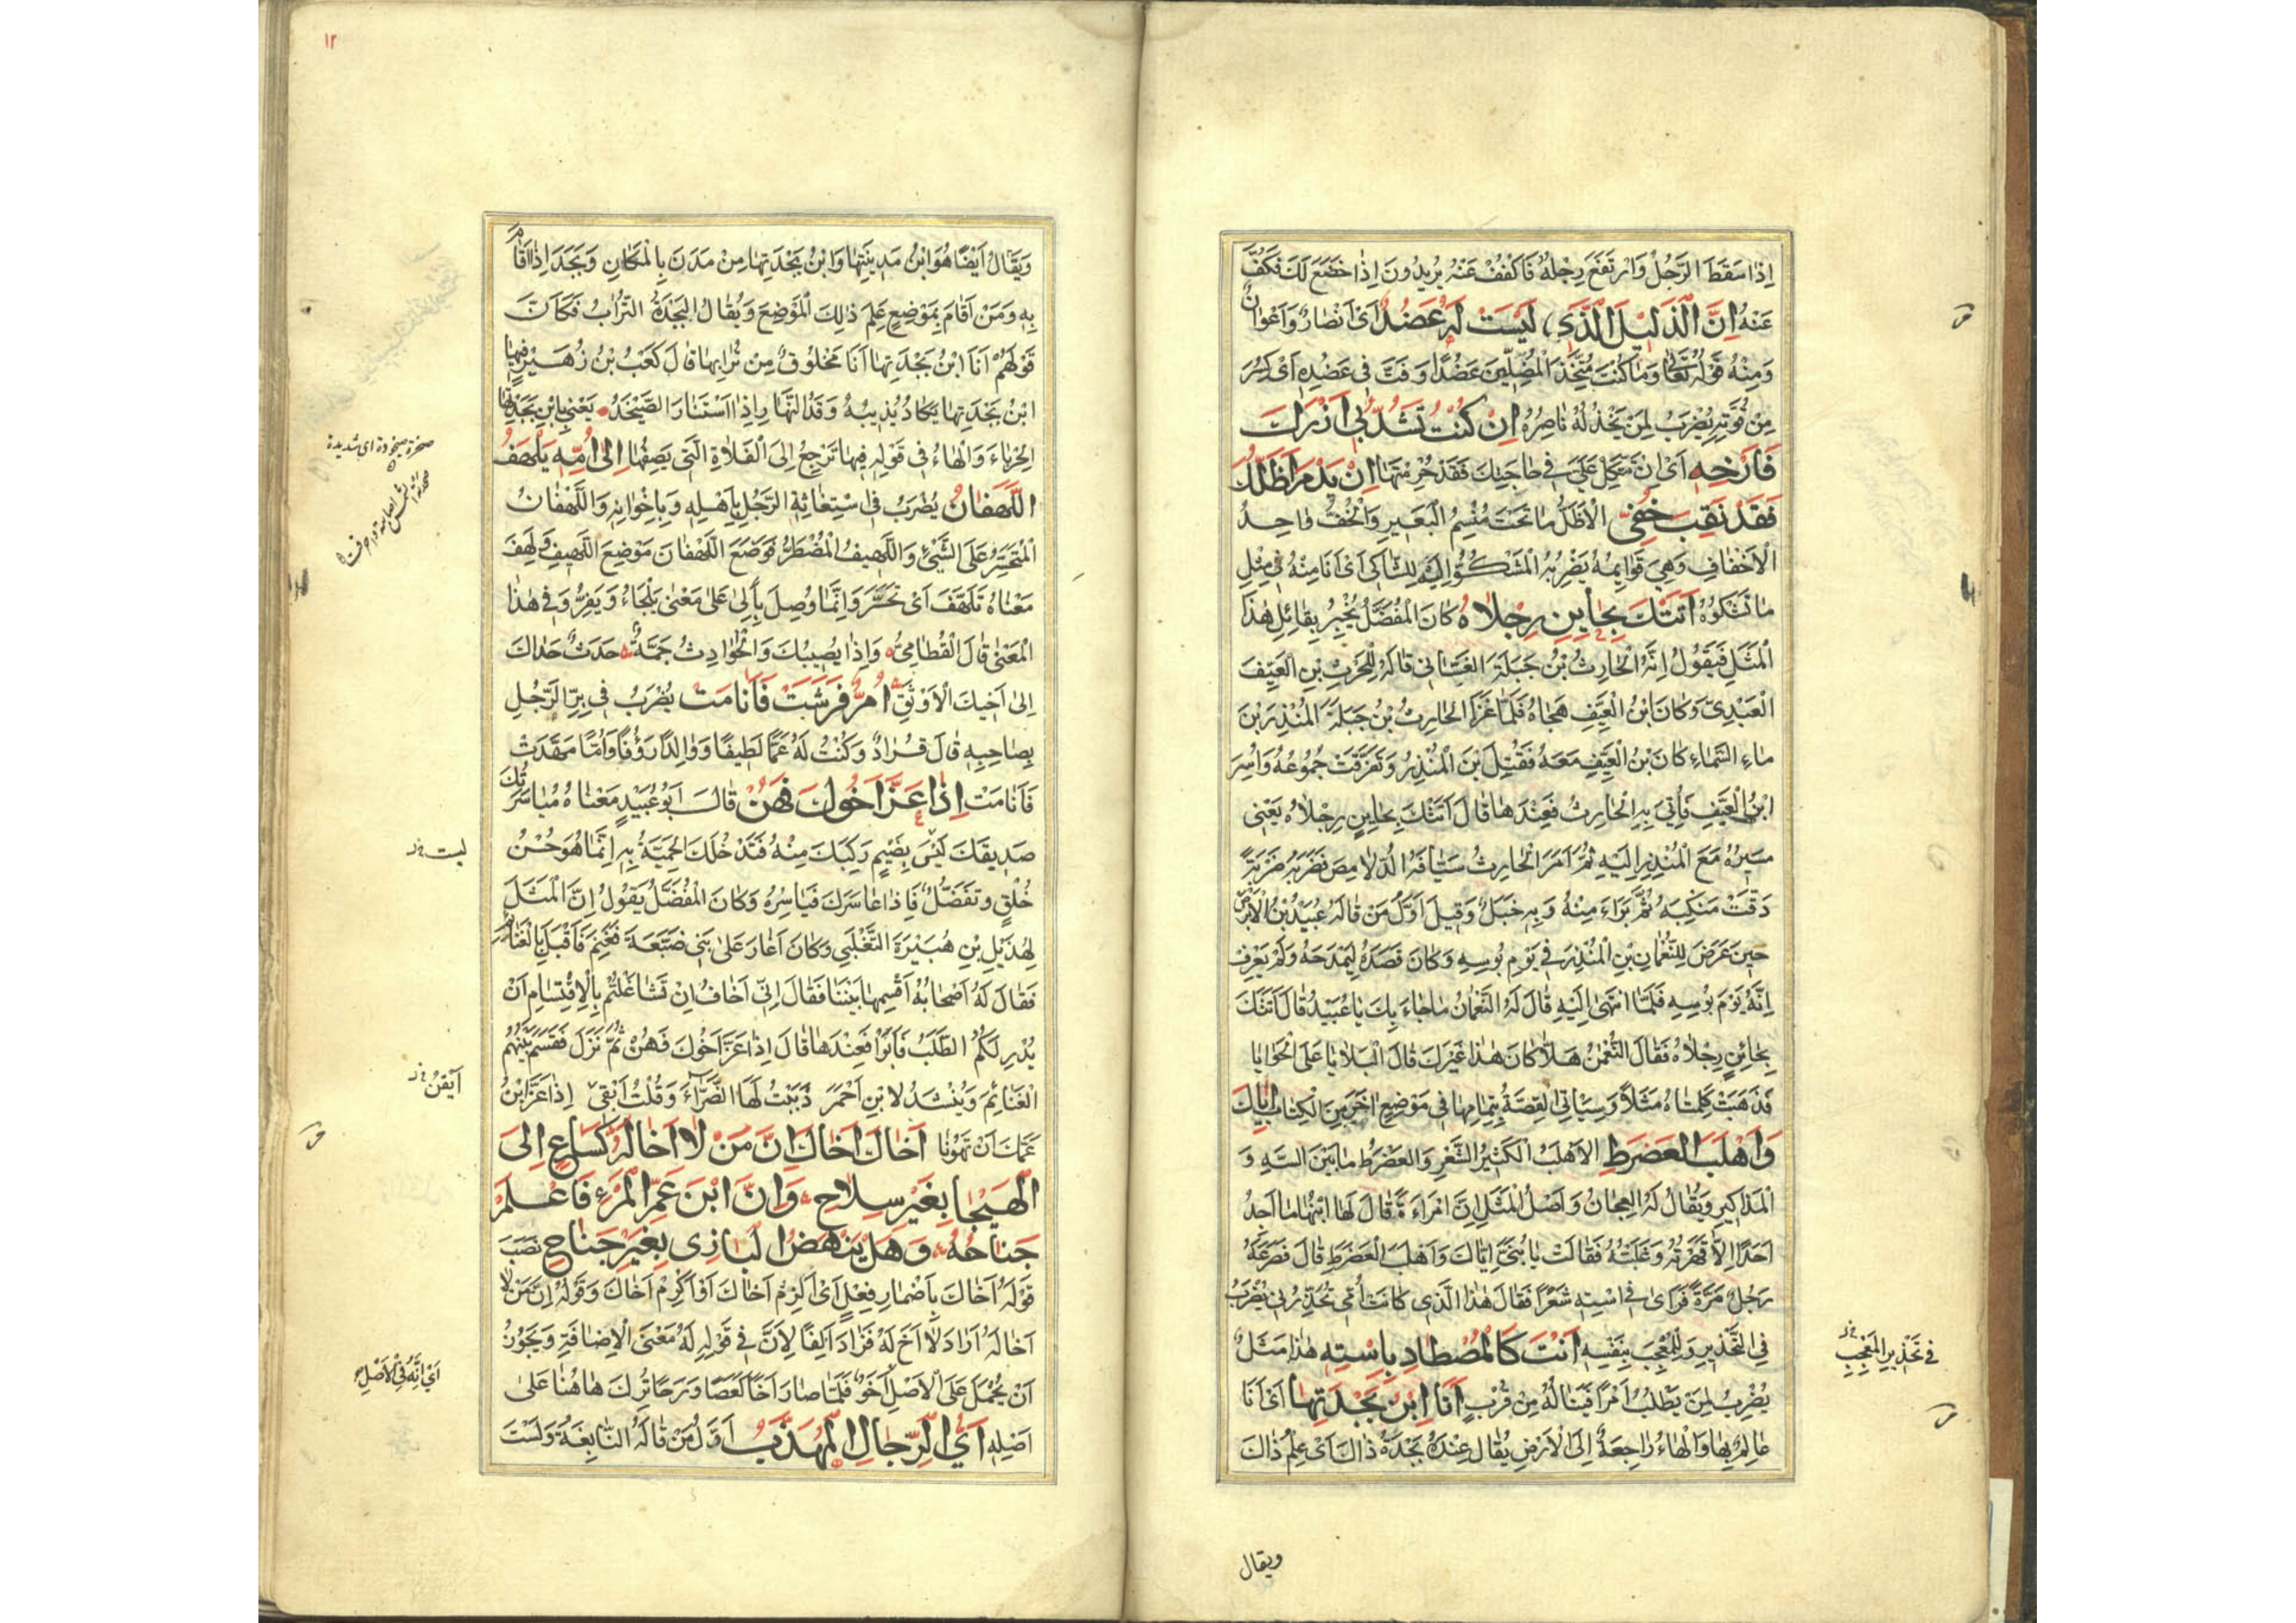 اِذَا سَقَطَ الرَّجُلُ وَارْتَفَعَ رِجْلُهُ فَاكْفُفْ عَنْهُ يُرِيدُونَ اِذَا خَضَعَ لَكَ فَكُفَّ
عَنْهُ اِنَّ الذَّلِيلَ الَّذِي لَيْسَتْ لَهُ عَضُدٌ اَيْ اَنْصَارٌ وَاَعْوَانٌ
وَمِنْهُ قَوْلُهُ تَعَالٰى وَمَا كُنْتُ مُتَّخِذَ الْمُضِلِّينَ عَضُدًا وَفَتَّ فِي عَضُدِهِ اَيْ كَسَرَ
مِنْ قُوَّتِهِ يُضْرَبُ لِمَنْ يَخْذُلُهُ نَاصِرُهُ اِنْ كُنْتَ تَشُدُّ بِي اَزْرَكَ
فَارْخِهِ اَيْ اِنْ تَتَّكِلْ عَلَيَّ فِي حَاجَتِكَ فَقَدْ حُرِمْتَهَا اِنْ يَدْمَ اَظَلُّكَ
فَقَدْ نَقِبَ خُفِّي الْاَظَلُّ مَا تَحْتَ مَنْسِمِ الْبَعِيرِ وَالْخُفُّ وَاحِدُ
الْاَخْفَافِ وَهِيَ قَوَايِمُهُ يَضْرِبُهُ الْمَشْكُوُّ اِلَيْهِ لِلشَّاكِي اَيْ اَنَا مِنْهُ فِي مِثْلِ
مَا تَشْكُوهُ اَتَتْكَ بِحَايِنٍ رِجْلَاهُ كَانَ الْمُفَضَّلُ يُخْبِرُ بِقَائِلِ هٰذَا
الْمَثَلِ فَيَقُولُ اِنَّهُ الْحَارِثُ بْنُ جَبَلَةَ الْغَسَّانِي قَالَهُ لِلْحَرْثِ بْنِ الْعَيِّفِ
الْعَبْدِيِّ وَكَانَ ابْنُ الْعَيِّفِ هَجَاهُ فَلَمَّا غَزَا الْحَارِثُ بْنُ جَبَلَةَ الْمُنْذِرَ بْنَ
مَاءِ السَّمَاءِ كَانَ بْنُ الْعَيِّفِ مَعَهُ فَقُتِلَ بْنُ الْمُنْذِرِ وَتَفَرَّقَتْ جُمُوعُهُ وَاُسِرَ
ابْنُ الْعَيِّفِ فَاُتِيَ بِهِ الْحَارِثُ فَعِنْدَهَا قَالَ اَتَتْكَ بِحَايِنٍ رِجْلَاهُ يَعْنِي
مَسِيرَهُ مَعَ الْمُنْذِرِ اِلَيْهِ ثُمَّ اَمَرَ الْحَارِثُ سَيَّافَهُ الدُّلَامِصَ فَضَرَبَهُ ضَرْبَةً
دَقَّتْ مَنْكِبَهُ ثُمَّ بَرَاءَ مِنْهُ وَبِهِ خَبَلٌ وَقِيلَ اَوَّلُ مَنْ قَالَهُ عُبَيْدُ بْنُ الْاَبْرَصِ
حِينَ عَرَضَ لِلنُّعْمَانِ بْنِ الْمُنْذِرِ فِي يَوْمِ بُوسِهِ وَكَانَ قَصَدَهُ لِيَمْدَحَهُ وَلَمْ يَعْرِفْ
اِنَّهُ يَوْمَ بُوسِهِ فَلَمَّا انْتَهٰى اِلَيْهِ قَالَ لَهُ النُّعْمَانُ مَا جَاءَ بِكَ يَا عُبَيْدُ قَالَ اَتَتْكَ
بِحَائِنٍ رِجْلَاهُ فَقَالَ النُّعْمٰنُ هَلَّا كَانَ هٰذَا غَيْرَكَ قَالَ الْبَلَايَا عَلَى الْحَوَايَا
فَذَهَبَتْ كَلِمَتَاهُ مَثَلًا وَسَيَاتِي الْقِصَّةُ بِتَمَامِهَا فِي مَوْضِعٍ اٰخَرَ مِنَ الْكِتَابِ اِيَّاكَ
وَاَهْلَبَ الْعَضْرَطِ الْاَهْلَبُ الْكَثِيرُ الشَّعْرِ وَالْعَضْرَطُ مَا بَيْنَ السَّهِ وَ
الْمَذَاكِيرِ وَيُقَالُ لَهُ الْعِجَانُ وَاَصْلُ الْمَثَلِ اِنَّ امْرَاَةً قَالَ لَهَا ابْنُهَا مَا اَجِدُ
اَحَدًا اِلَّا قَهَرْتُهُ وَغَلَبْتُهُ فَقَالَتْ يَا بُنَيَّ اِيَّاكَ وَاَهْلَبَ الْعَضْرَطِ قَالَ فَصَرَعَهُ
رَجُلٌ مَرَّةً فَرَاٰى فِي اسْتِهِ شَعْرًا فَقَالَ هٰذَا الَّذِي كَانَتْ اُمِّي تُحَذِّرُنِي يُضْرَبُ
فِي التَّحْذِيرِ وَلِلْمُعْجَبِ بِنَفْسِهِ اَنْتَ كَالْمُصْطَادِ بِاسْتِهِ هٰذَا مَثَلٌ
يُضْرَبُ لِمَنْ يَطْلُبُ اَمْرًا فَيَنَالُهُ مِنْ قُرْبٍ اَنَا ابْنُ بَجْدَتِهَا اَيْ اَنَا
عَالِمٌ بِهَا وَالْهَاءُ رَاجِعَةٌ اِلَى الْاَرْضِ يُقَالُ عِنْدَهُ بَجْدَةُ ذَالِكَ اَيْ عِلْمُ ذَاكَ
فِي تَحْذِيرِ الْمُعْجَبِ
ويقال
١٢
وَيُقَالُ اَيْضًا هُوَ ابْنُ مَدِينَتِهَا وَابْنُ بَجْدَتِهَا مِنْ مَدَنَ بِالْمَكَانِ وَبَجَدَ اِذَا اَقَامَ
بِهِ وَمَنْ اَقَامَ بِمَوْضِعٍ عَلِمَ ذٰلِكَ الْمَوْضِعَ وَيُقَالُ الْبَجْدَةُ التُّرَابُ فَكَاَنَّ
قَوْلَهُمْ اَنَا ابْنُ بَجْدَتِهَا اَنَا مَخْلُوقٌ مِنْ تُرَابِهَا قَالَ كَعْبُ بْنُ زُهَيْرٍ فِيهَا
ابْنُ بَجْدَتِهَا يَكَادُ يُذِيبُهُ وَقْدُ النَّهَارِ اِذَا اسْتَنَارَ الصَّيْخَدُ يَعْنِي بِابْنِ بَجْدَتِهَا
الْحِرْبَاءَ وَالْهَاءُ فِي قَوْلِهِ فِيهَا تَرْجِعُ اِلَى الْفَلَاةِ الَّتِي يَصِفُهَا اِلٰى اُمِّهِ يَلْهَفُ
اللَّهْفَانُ يُضْرَبُ فِي اسْتِغَاثَةِ الرَّجُلِ بِاَهْلِهِ وَبِاِخْوَانِهِ وَاللَّهْفَانُ
الْمُتَحَسِّرُ عَلَى الشَّيْءِ وَاللَّهِيفُ الْمُضْطَرُّ فَوَضَعَ اللَّهْفَانَ مَوْضِعَ اللَّهِيفِ وَلَهِفَ
مَعْنَاهُ تَلَهَّفَ اَيْ تَحَسَّرَ وَاِنَّمَا وُصِلَ بِاِلٰى عَلٰى مَعْنٰى يَلْجَاءُ وَيَفِرُّ وَفِي هٰذَا
الْمَعْنٰى قَالَ الْقُطَامِيُّ وَاِذَا يُصِيبُكَ وَالْحَوَادِثُ جَمَّةٌ حَدَثٌ حَدَاكَ
اِلٰى اَخِيكَ الْاَوْثَقِ اُمٌّ فَرَشَتْ فَاَنَامَتْ يُضْرَبُ فِي بِرِّ الرَّجُلِ
بِصَاحِبِهِ قَالَ قُرَادٌ وَكُنْتُ لَهُ عَمًّا لَطِيفًا وَوَالِدًا رَؤُفًا وَاُمًّا مَهَّدَتْ
فَاَنَامَتْ اِذَا عَزَّ اَخُوكَ فَهُنْ قَالَ اَبُو عُبَيْدٍ مَعْنَاهُ مُيَاسَرَتُكَ
صَدِيقَكَ لَيْسَ بِضَيْمٍ رَكِبَكَ مِنْهُ فَتَدْخُلَكَ الْحَمِيَّةُ بِهِ اِنَّمَا هُوَ حُسْنُ
خُلْقٍ وَتَفَضُّلٌ فَاِذَا عَاسَرَكَ فَيَاسِرْهُ وَكَانَ الْمُفَضَّلُ يَقُولُ اِنَّ الْمَثَلَ
لِهُذَيْلِ بْنِ هُبَيْرَةَ التَّغْلَبِي وَكَانَ اَغَارَ عَلٰى بَنِي ضَبَّعَةَ فَغَنِمَ فَاَقْبَلَ بِالْغَنَائِمِ
فَقَالَ لَهُ اَصْحَابُهُ اَقْسِمْهَا بَيْنَنَا فَقَالَ اِنِّي اَخَافُ اِنْ تَشَاغَلْتُمْ بِالْاِقْتِسَامِ اَنْ
يُدْرِكَكُمُ الطَّلَبُ فَاَبَوْا فَعِنْدَهَا قَالَ اِذَا عَزَّ اَخُوكَ فَهُنْ ثُمَّ نَزَلَ فَقَسَمَ بَيْنَهُمُ
الْغَنَائِمَ وَيُنْشَدُ لِابْنِ اَحْمَرَ دَبَبْتُ لَهَا الضَّرَّاءَ وَقُلْتُ اَبْقٰى اِذَا عَزَّ ابْنُ
عَمِّكَ اَنْ تَهُونَا اَخَاكَ اَخَاكَ اِنَّ مَنْ لَا اَخَا لَهُ كَسَاعٍ اِلَى
الْهَيْجَا بِغَيْرِ سِلَاحِ وَاِنَّ ابْنَ عَمِّ الْمَرْءِ فَاعْلَمْ
جَنَاحُهُ وَهَلْ يَنْهَضُ الْبَازِي بِغَيْرِ جَنَاحِ نَصَبَ
قَوْلَهُ اَخَاكَ بِاِضْمَارِ فِعْلٍ اَيْ اَلْزِمْ اَخَاكَ اَوْ اَكْرِمْ اَخَاكَ وَقَوْلُهُ اِنَّ مَنْ لَا
اَخَا لَهُ اَرَادَ لَا اَخَ لَهُ فَزَادَ اَلِفًا لِاَنَّ فِي قَوْلِهِ لَهُ مَعْنَى الْاِضَافَةِ وَيَجُوزُ
اَنْ يُحْمَلَ عَلَى الْاَصْلِ اَخَوٌ فَلَمَّا صَارَ اَخًا كَعَصًا وَرَحًا تُرِكَ هَاهُنَا عَلٰى
اَصْلِهِ اَيُّ الرِّجَالِ الْمُهَذَّبُ اَوَّلُ مَنْ قَالَهُ النَّابِغَةُ وَلَسْتَ
صخرة صيخودة اى شديدة
ليست
اَيْقَنُ
اَيْ اِنَّهُ فِي الْاَصْلِ